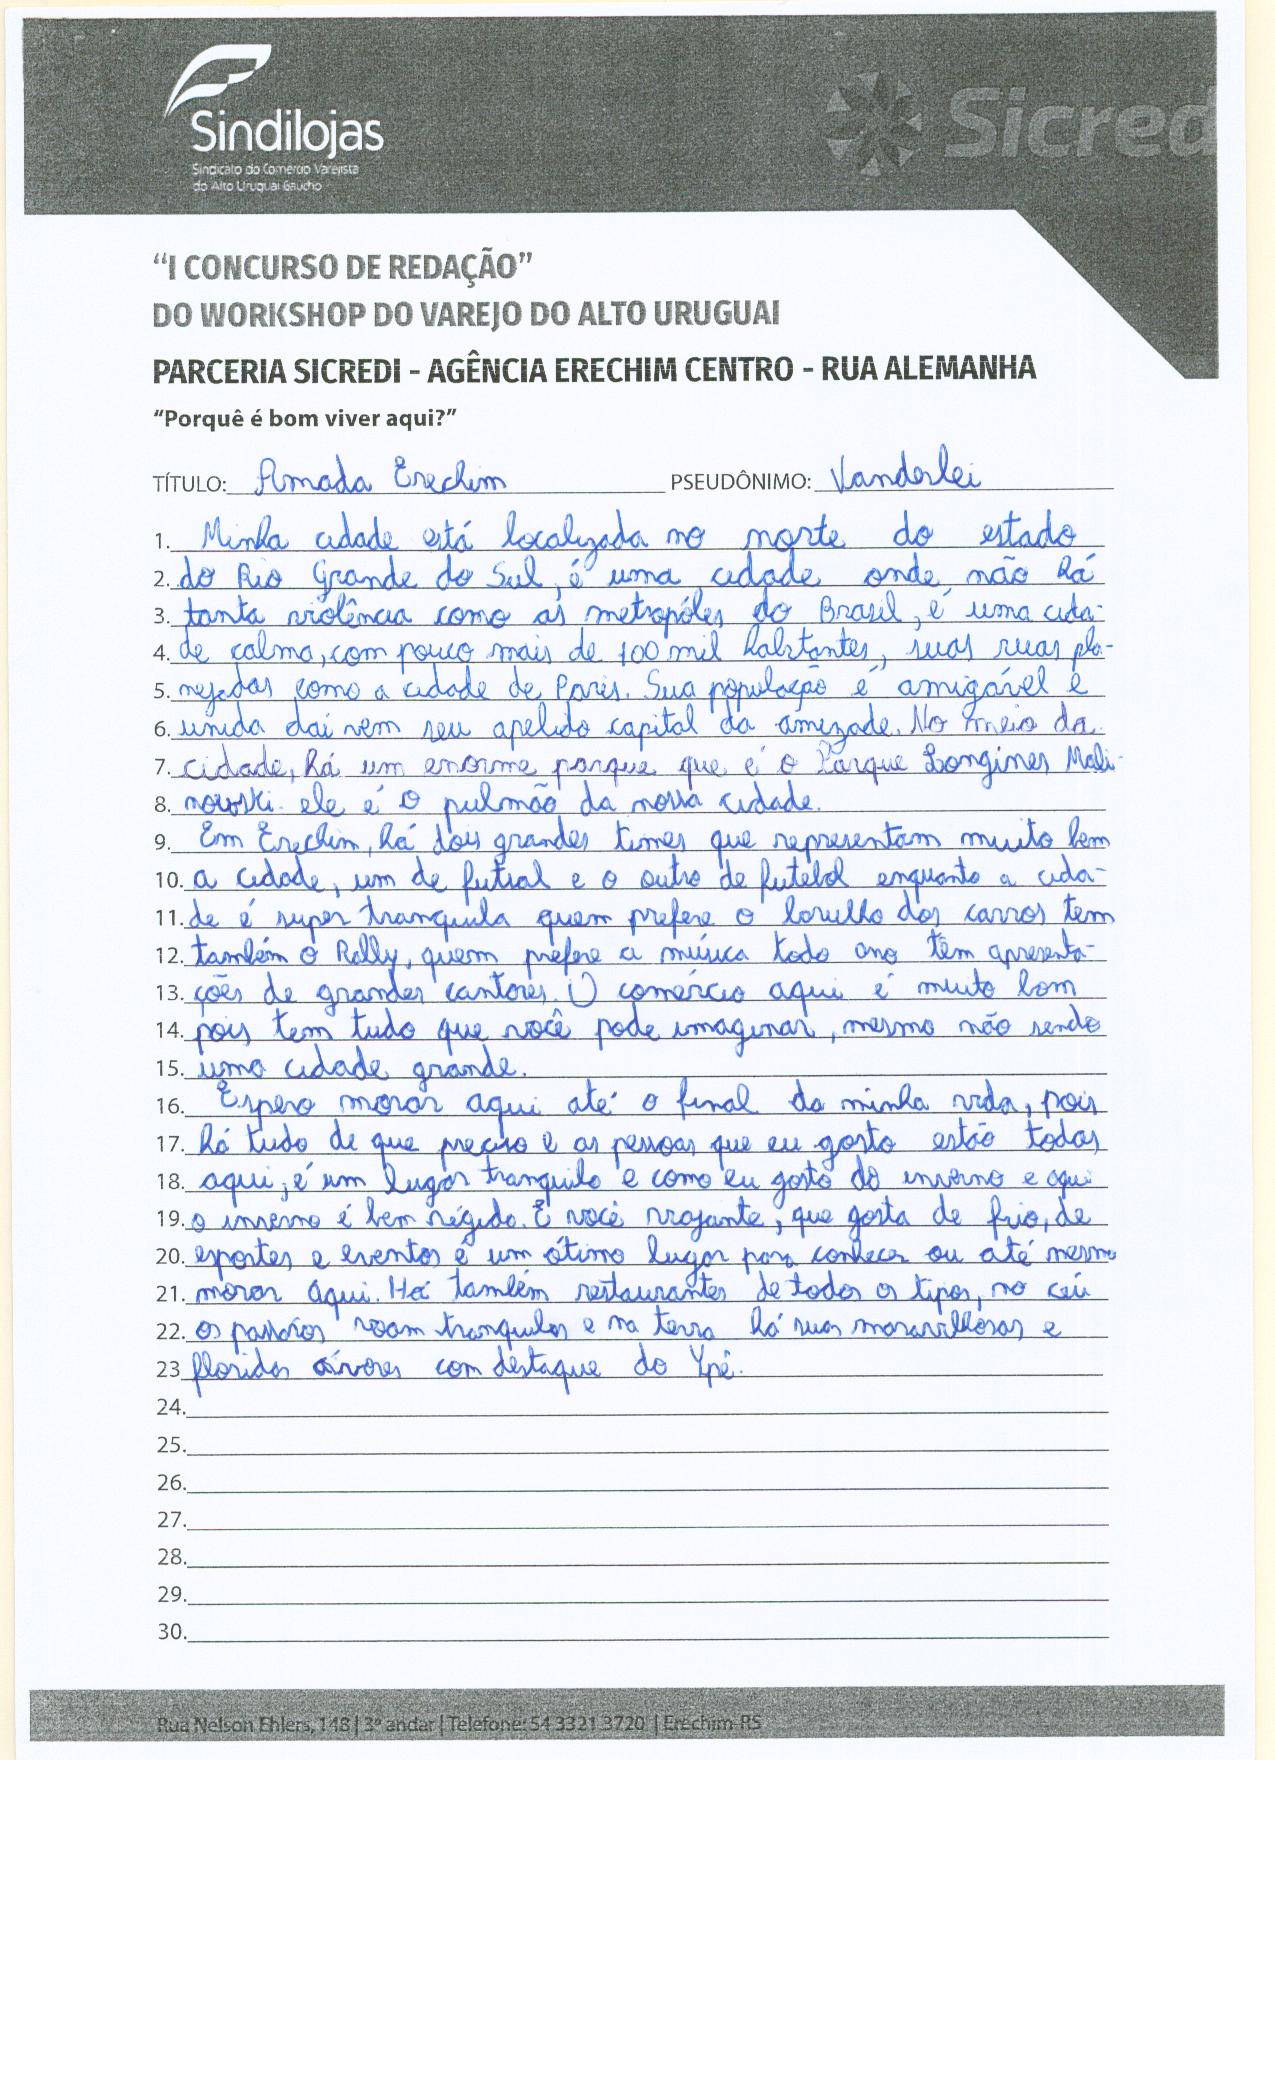 Sindilojas
Sindicato do Comércio Varejista
do Alto Uruguai Gaúcho
Sicred
“I CONCURSO DE REDAÇÃO”
DO WORKSHOP DO VAREJO DO ALTO URUGUAI
PARCERIA SICREDI - AGÊNCIA ERECHIM CENTRO - RUA ALEMANHA
“Porquê é bom viver aqui?”
TÍTULO: Amada Erechim PSEUDÔNIMO: Vanderlei
1. Minha cidade está localizada no norte do estado
2. do Rio Grande do Sul, é uma cidade onde não há
3. tanta violência como as metropóles do Brasil, é uma cida-
4. de calma, com pouco mais de 100 mil habitantes, suas ruas pla-
5. nejadas como a cidade de Paris. Sua população é amigável e
6. unida daí vem seu apelido capital da amizade. No meio da
7. cidade, há um enorme parque que é o Parque Longines Mali-
8. nowski. ele é o pulmão da nossa cidade.
9. Em Erechim, há dois grandes times que representam muito bem
10. a cidade, um de futsal e o outro de futebol enquanto a cida-
11. de é super tranquila quem prefere o barulho dos carros tem
12. também o Rally, quem prefere a música todo ano têm apresenta-
13. ções de grandes cantores. O comércio aqui é muito bom
14. pois tem tudo que você pode imaginar, mesmo não sendo
15. uma cidade grande.
16. Espero morar aqui até o final da minha vida, pois
17. há tudo de que preciso e as pessoas que eu gosto estão todas
18. aqui, é um lugar tranquilo e como eu gosto do inverno e aqui
19. o inverno é bem rígido. E você viajante, que gosta de frio, de
20. esportes e eventos é um ótimo lugar para conhecer ou até mesmo
21. morar aqui. Há também restaurantes de todos os tipos, no céu
22. os passáros voam tranquilos e na terra há ruas maravilhosas e
23. floridas árvores com destaque do Ypê.
24.
25.
26.
27.
28.
29.
30.
Rua Nelson Ehlers, 148 | 3º andar | Telefone: 54 3321 3720 | Erechim-RS